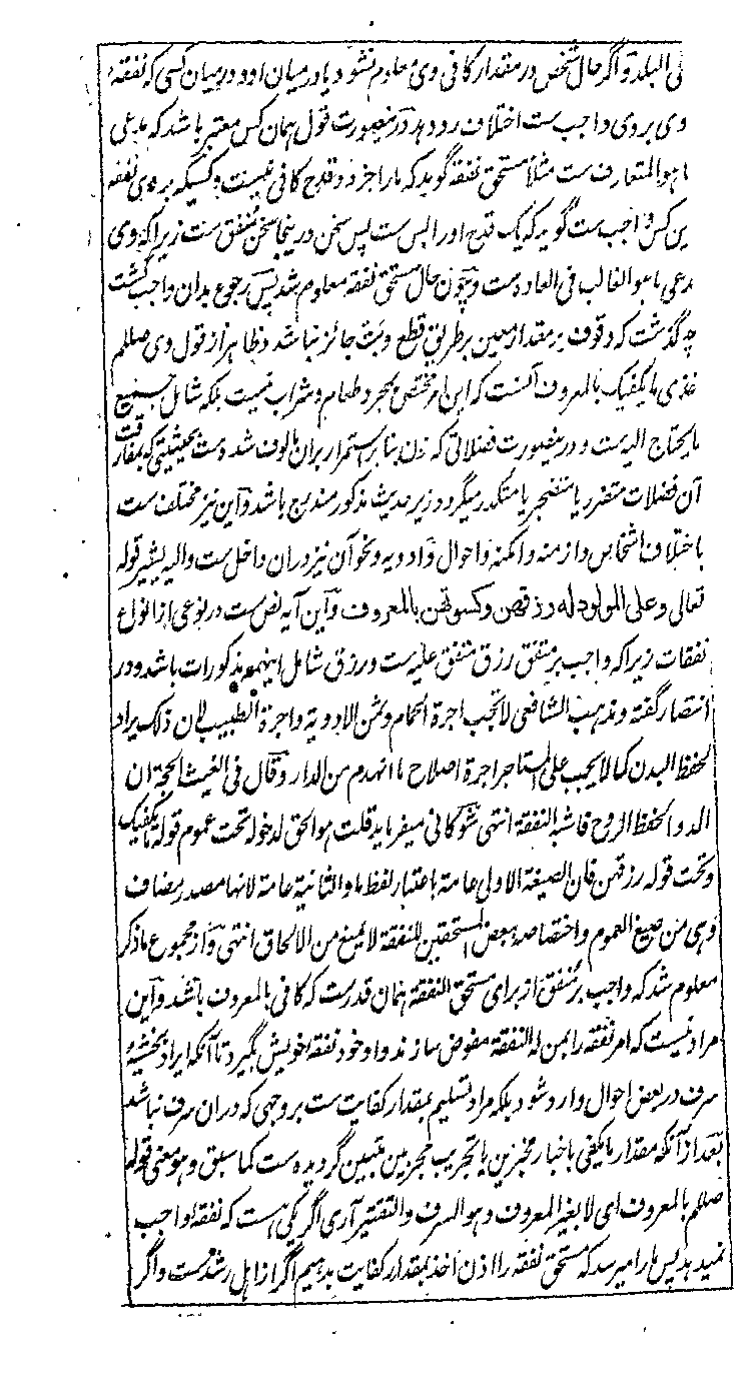 فی البلد و اگر حال شخص در مقدار کافی وی معلوم نشود یا در میان او و در میان کسی که نفقهٔ
وی بر وی واجب ست اختلاف رود پس درینصورت قول همان کس معتبر باشد که مدعی
ما هو المتعارف ست مثلا مستحق نفقه گوید که مارا جز دو قدح کافی نیست و کسیکه بر وی نفقه
این کس واجب ست گوید که یک قدح اورا بس ست پس سخن درینجا سخن منفق ست زیراکه وی
مدعی ما هو الغالب فی العاده ست و چون حال مستحق نفقه معلوم شد پس رجوع بدان واجب گشت
چه گذشت که وقوف بر مقدار معین بر طریق قطع و بت جائز نباشد و ظاهر از قول وی صللم
خذی ما یکفیک بالمعروف آنست که این امر مختص بمجرد طعام و شراب نیست بلکه شامل جمیع
ما یحتاج الیه ست و درینصورت فضلاتی که زن بنا بر استمرار بران مالوف شده ست بحیثیتی که بمفارقت
آن فضلات متضرر یا متضجر یا متکدر میگردد زیر حدیث مذکور مندرج باشد و این نیز مختلف ست
باختلاف اشخاص و ازمنه و امکنه و احوال و ادویه و نحو آن نیز دران داخل ست و الیه یشیر قوله
تعالی و علی المولود له رزقهن و کسوتهن بالمعروف و این آیه نص ست در نوعی از انواع
نفقات زیراکه واجب بر منفق رزق منفق علیه ست و رزق شامل اینهمه مذکورات باشد و در
انتصار گفته و مذهب الشافعی لا تجب اجرة الحمام و ثمن الادویة و اجرة الطبیب لان ذلک یراد
لحفظ البدن کما لا یجب علی المستاجر اجرة اصلاح ما انهدم من الدار و قال فی الغیث الحجة ان
الدواء لحفظ الروح فاشبه النفقة انتهی شوکانی میفرماید قلت هو الحق لدخوله تحت عموم قوله ما یکفیک
و تحت قوله رزقهن فان الصیغة الاولی عامة باعتبار لفظ ما و الثانیة عامة لانها مصدر مضاف
و هی من صیغ العموم و اختصاصه ببعض المستحقین للنفقة لا یمنع من الالحاق انتهی و از مجموع ما ذکر
معلوم شد که واجب بر منفق از برای مستحق النفقة همان قدر ست که کافی بالمعروف باشد و این
مراد نیست که امر نفقه را بمن له النفقة مفوض سازند و او خود نفقهٔ خویش بگیرد تا آنکه ایراد بخشیهٔ
سرف در بعض احوال وارد شود بلکه مراد تسلیم بمقدار کفایت ست بر وجهی که دران سرف نباشد
بعد از آنکه مقدار ما یکفی باخبار مخبرین یا تجریب مجربین متبین گردیده ست کما سبق و هو معنی قوله
صللم بالمعروف ای لا بغیر المعروف و هو السرف و التقتیر آری اگر یکی هست که نفقهٔ واجب
نمیدهد پس مارا میرسد که مستحق نفقه را اذن اخذ بمقدار کفایت بدهیم اگر از اهل رشد ست و اگر